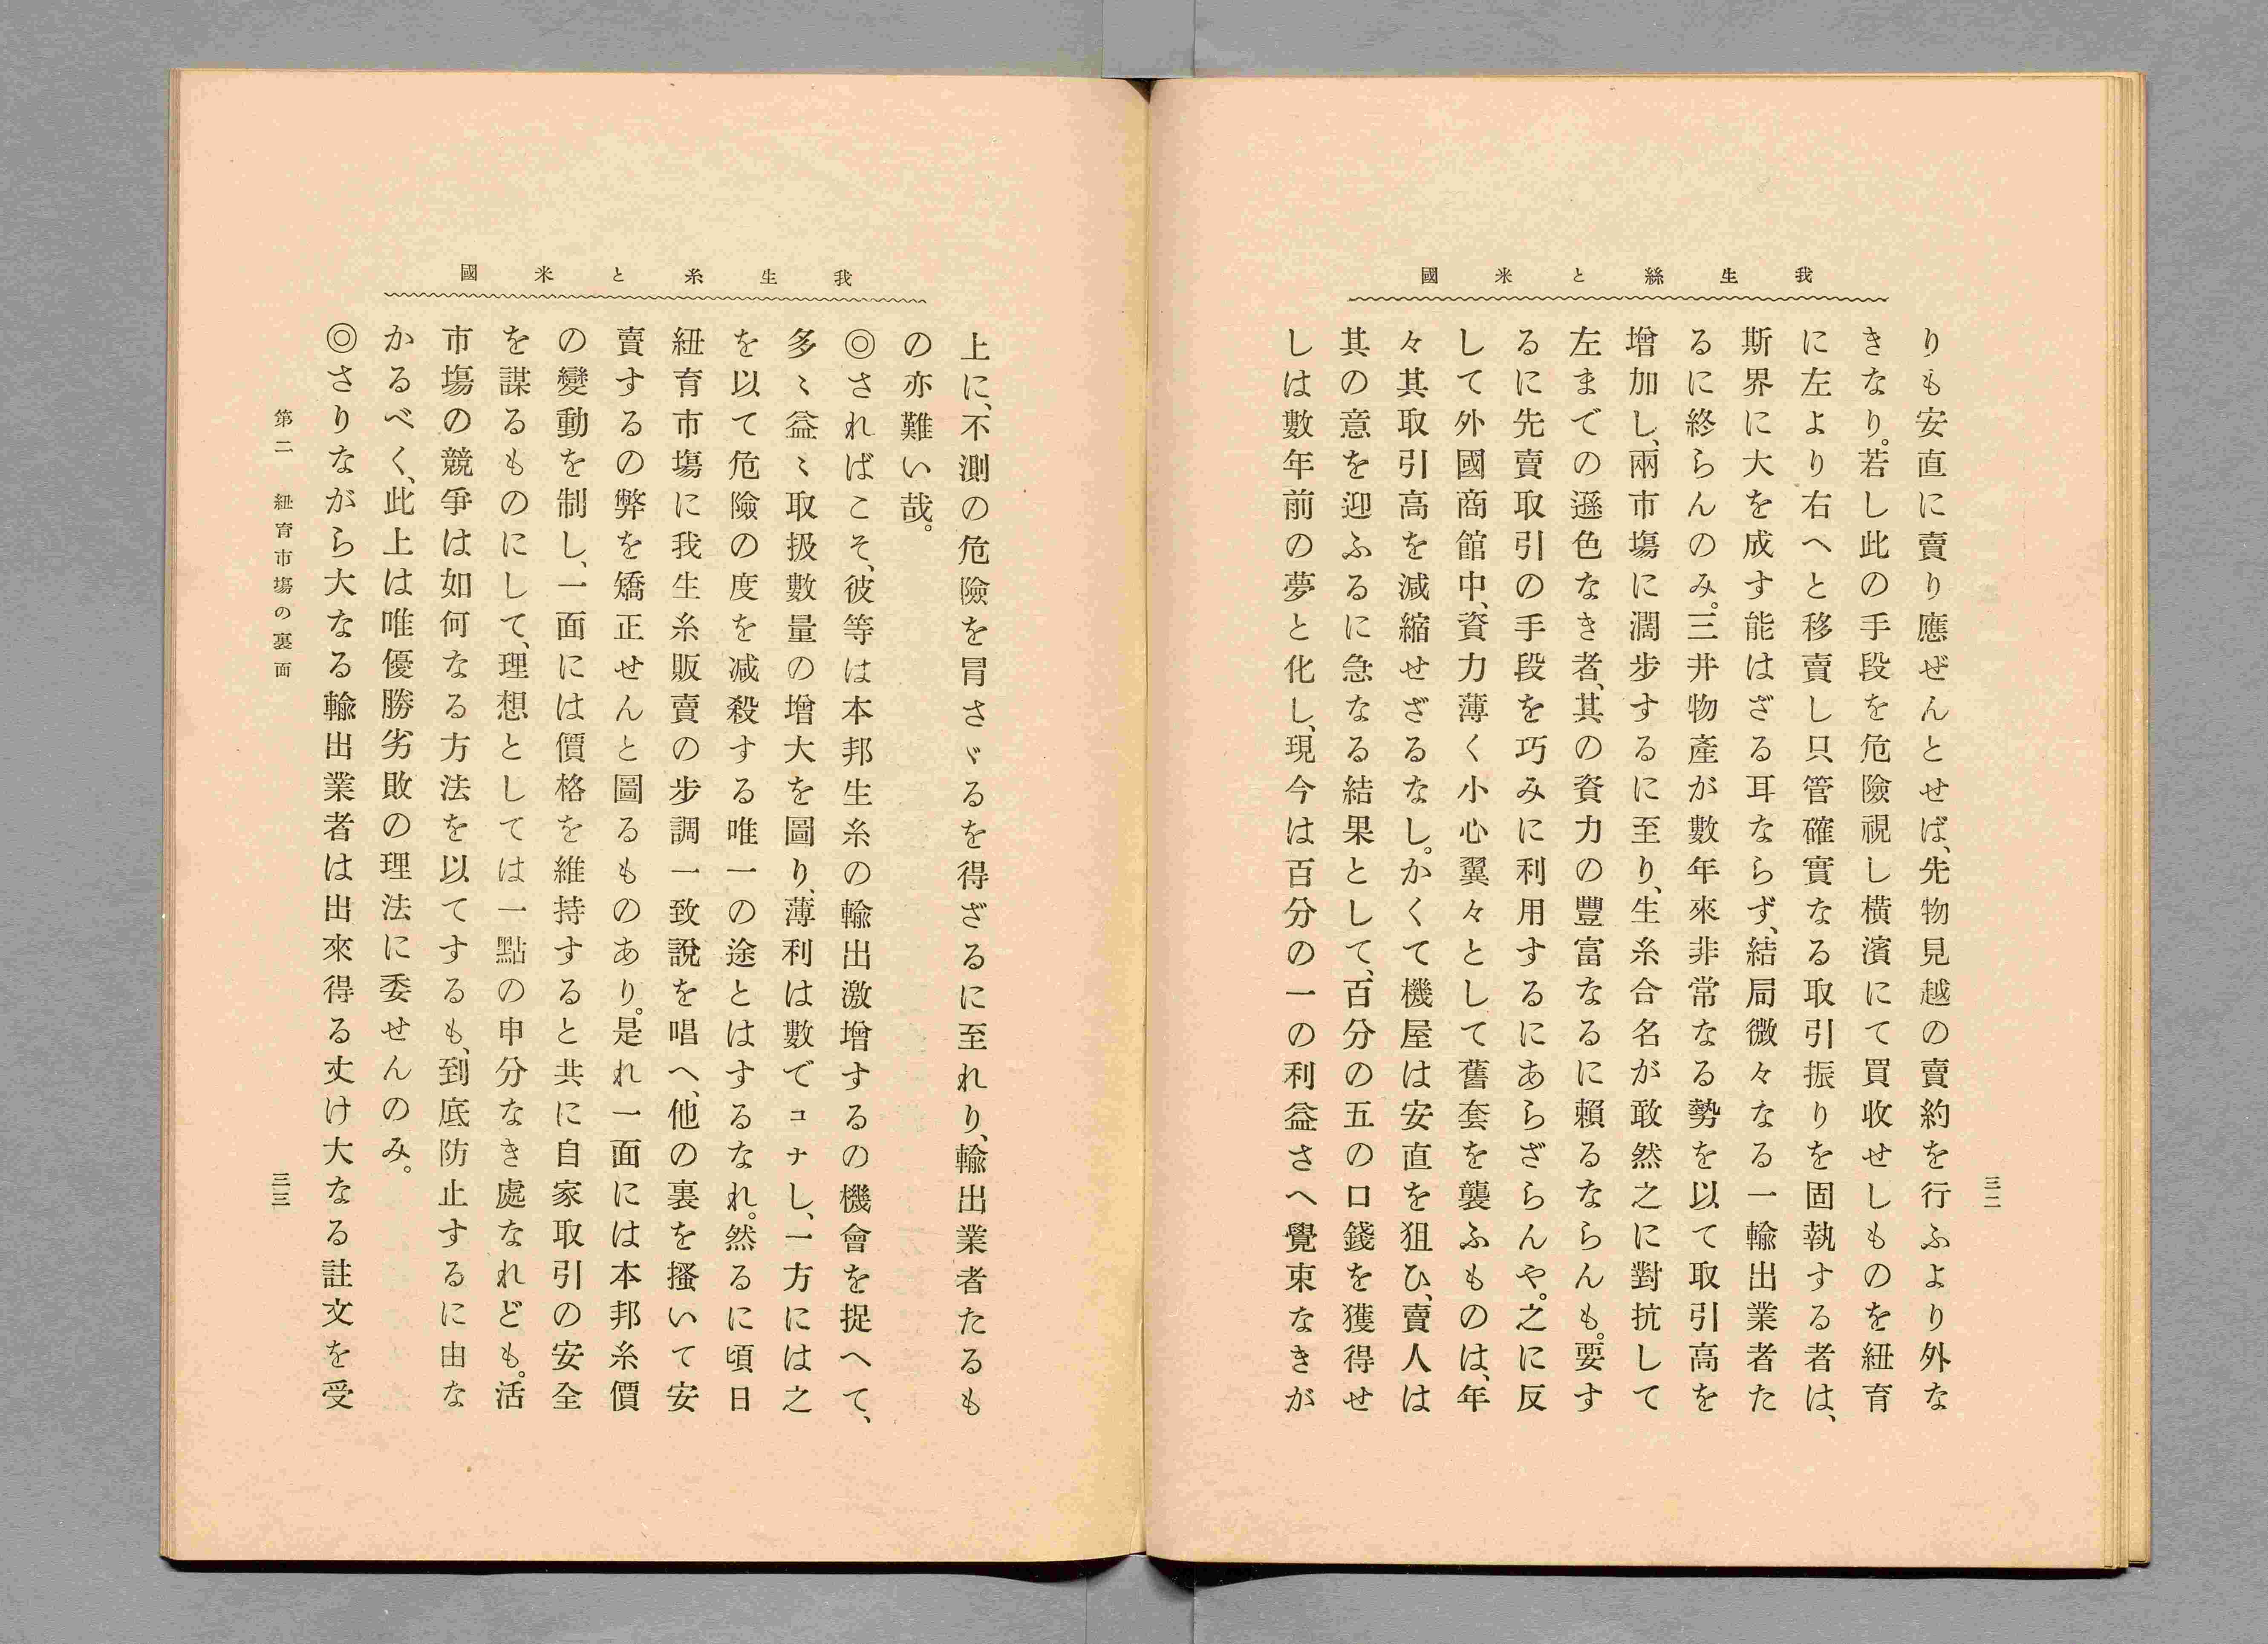 我生絲と米國
りも安直に賣り應ぜんとせば、先物見越の賣約を行ふより外な
きなり。若し此の手段を危險視し横濱にて買收せしものを紐育
に左より右へと移賣し只管確實なる取引振りを固執する者は、
斯界に大を成す能はざる耳ならず、結局微々なる一輸出業者た
るに終らんのみ。三井物產が數年來非常なる勢を以て取引高を
增加し、兩市場に濶步するに至り、生糸合名が敢然之に對抗して
左までの遜色なき者、其の資力の豐富なるに賴るならんも。要す
るに先賣取引の手段を巧みに利用するにあらざらんや。之に反
して外國商館中、資力薄く小心翼々として舊套を襲ふものは、年
々其取引高を減縮せざるなし。かくて機屋は安直を狙ひ、賣人は
其の意を迎ふるに急なる結果として、百分の五の口錢を獲得せ
しは數年前の夢と化し、現今は百分の一の利益さへ覺束なきが
三二
我生糸と米國
上に、不測の危險を冐さゞるを得ざるに至れり、輸出業者たるも
の亦難い哉。
◎さればこそ、彼等は本邦生糸の輸出激增するの機會を捉へて、
多〻益〻取扱數量の增大を圖り、薄利は數でコナし、一方には之
を以て危險の度を減殺する唯一の途とはするなれ。然るに頃日
紐育市塲に我生糸販賣の步調一致說を唱へ、他の裏を搔いて安
賣するの弊を矯正せんと圖るものあり。是れ一面には本邦糸價
の變動を制し、一面には價格を維持すると共に自家取引の安全
を謀るものにして、理想としては一點の申分なき處なれども。活
市塲の競爭は如何なる方法を以てするも、到底防止するに由な
かるべく、此上は唯優勝劣敗の理法に委せんのみ。
◎さりながら大なる輸出業者は出來得る丈け大なる註文を受
第二　紐育市塲の裏面
三三